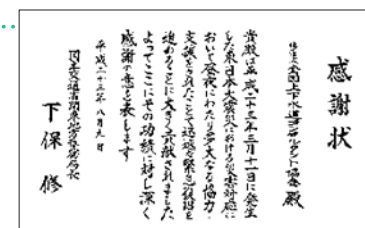 感謝状
(社)全国上下水道コンサルタント協会 殿
貴殿は平成二十三年三月十一日に発生
した東日本大震災における災害対応に
おいて昼夜にわたり多大なる協力・
支援をされたことで迅速な緊急復旧を
進めることに大きく貢献されました
よってここにその功績に対し深く
感謝の意を表します
平成二十三年八月九日
国土交通省関東地方整備局長
下保 修